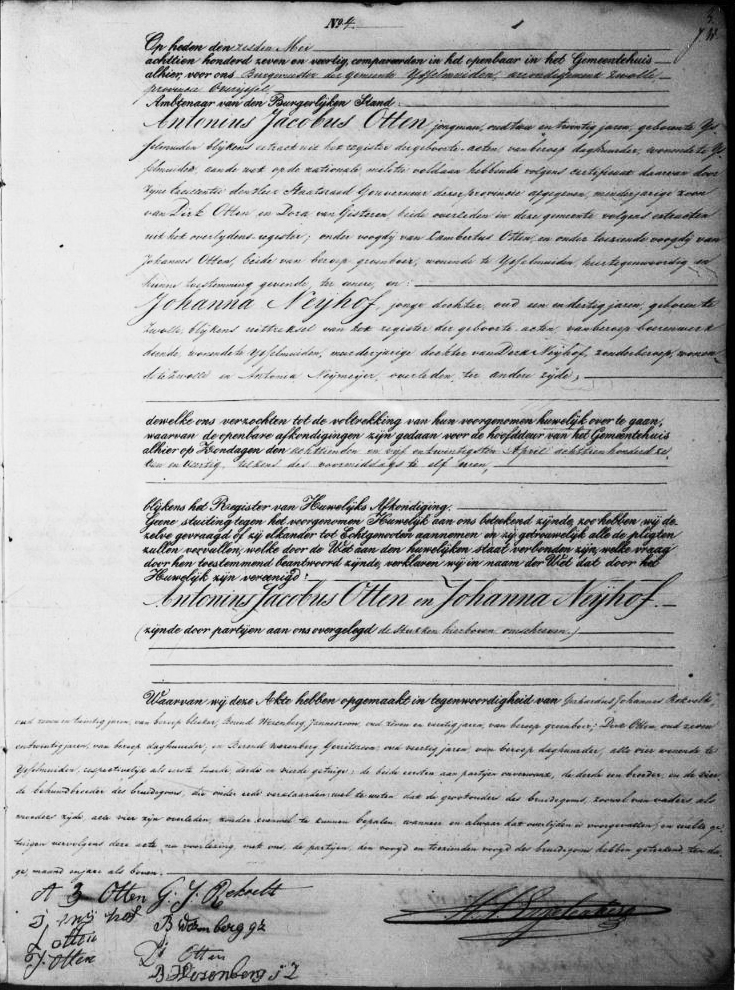 No. 4.
Op heden den zesden Mei
achttien honderd zeven en veertig, compareerden in het openbaar in het Gemeentehuis
alhier, voor ons Burgemeester der gemeente IJsselmuiden, arrondissement Zwolle
provincie Overijssel,
Ambtenaar van den Burgerlijken Stand:
Antonius Jacobus Otten jongman, oud twee en twintig jaren, geboren te IJs
selmuiden blijkens extract uit het register der geboorte-acten, van beroep daghuurder, wonende te IJs
selmuiden, aan de wet op de nationale militie voldaan hebbende volgens certificaat daarvan door
zijne Excellentie den Heer Staatsraad Gouverneur dezer provincie afgegeven, minderjarige zoon
van Dirk Otten en Dora van Gisteren, beide overleden in deze gemeente volgens extracten
uit het overlijdens register; onder voogdij van Lambertus Otten, en onder toeziende voogdij van
Johannes Otten, beide van beroep groenboer, wonende te IJsselmuiden, hier tegenwoordig en
hunne toestemming gevende, ter eenre, en:
Johanna Neijhof, jonge dochter, oud een en dertig jaren, geboren te
Zwolle, blijkens uittreksel van het register der geboorte acten, van beroep boerenwerk
doende, wonende te IJsselmuiden, meerderjarige dochter van Derk Neijhof, zonder beroep, wonen
de te Zwolle en Antonia Neijmeijer, overleden, ter andere zijde,
dewelke ons verzochten tot de voltrekking van hun voorgenomen huwelijk over te gaan,
waarvan de openbare afkondigingen zijn gedaan voor de hoofddeur van het Gemeentehuis
alhier op Zondagen den achttienden en vijf en twintigsten April achttienhonderd ze
ven en veertig, telkens des voormiddags te elf uren,
blijkens het Register van Huwelijks Afkondiging.
Geene stuiting tegen het voorgenomen Huwelijk aan ons beteekend zijnde, zoo hebben wij de
zelve gevraagd of zij elkander tot Echtgenooten aannemen en zij getrouwelijk alle de pligten
zullen vervullen, welke door de Wet aan den huwelijken staat verbonden zijn, welke vraag
door hen toestemmend beantwoord zijnde, verklaren wij in naam der Wet dat door het
Huwelijk zijn vereenigd:
Antonius Jacobus Otten en Johanna Neijhof.
(zijnde door partijen aan ons overgelegd de stukken hierboven omschreven.)
Waarvan wij deze Akte hebben opgemaakt in tegenwoordigheid van Gerhardus Johannes Rekveldt,
oud zeven en twintig jaren, van beroep bleeker, Berend Worenberg, Janneszoon, oud zeven en veertig jaren, van beroep groenboer; Dirk Otten, oud zeven
en twintig jaren, van beroep daghuurder, en Berend Worenberg Gerritszoon, oud veertig jaren, van beroep daghuurder, alle vier wonende te
IJsselmuiden, respectivelijk als eerste tweede, derde en vierde getuige; de beide eersten aan partijen onverwant, de derde een broeder, en de vier
de behuwdbroeder des bruidegoms, die onder eede verklaarden wel te weten dat de grootouders des bruidegoms, zoowel van vaders als
moeders zijde, alle vier zijn overleden, zonder evenwel te kunnen bepalen, wanneer en alwaar dat overlijden is voorgevallen; en welke ge
tuigen vervolgens deze acte, na voorlezing, met ons, de partijen, den voogd en toezienden voogd des bruidegoms hebben geteekend, ten da
ge, maand en jare als boven.
A J Otten G. J. Rekvelt
J neij hof B Worenberg gz
L otten D Otten
J. Otten B Worenberg j Z